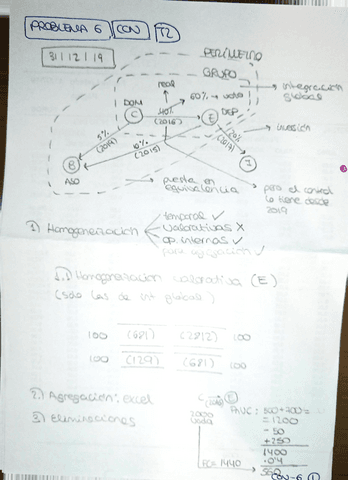 PROBLEMA 6 CON T2
31/12/19
PERÍMETRO
GRUPO
integración global
real
60% → voto
DOM
C
40%
(2016)
E
DEP
5%
(2019)
10%
(2015)
20%
(2017)
inversión
B
ASO
J
puesta en equivalencia
pero el control lo tiene desde 2019
1) Homogeneización
temporal ✓
valorativas X
op. internas ✓
para agregación ✓
1.1) Homogeneización valorativa (E)
(sólo las de int global)
100 (681) (2812) 100
100 (129) (681) 100
2) Agregación: excel
3) Eliminaciones
C E
2000
FC = 1440
PAVC: 500+700 =
= 1200
- 50
+ 250
1400
0,4
560
CON-6 1